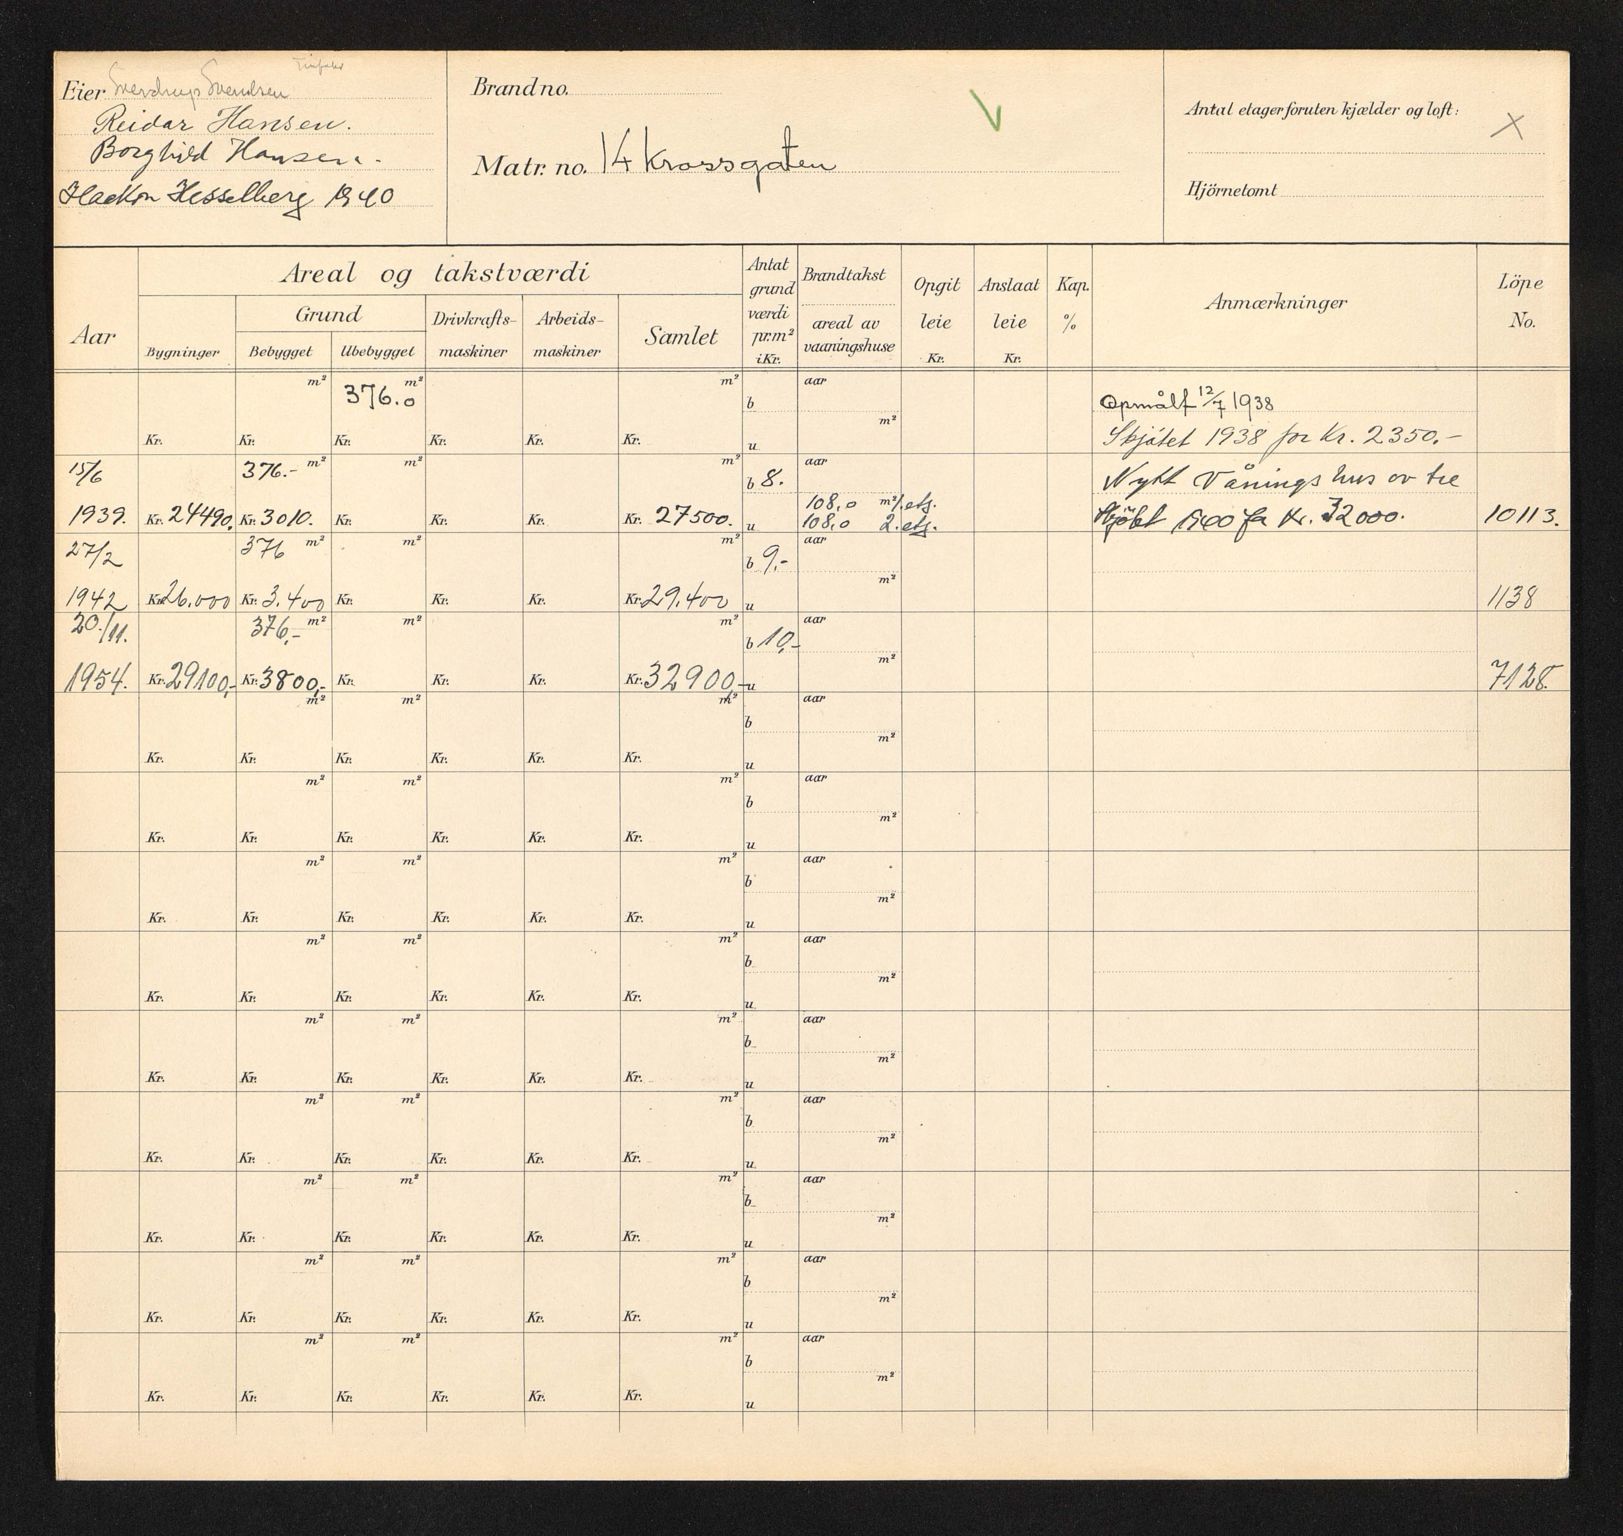 Eier Sverdrup Svendsen
Reidar Hansen.
Borghild Hansen.
Haakon Hesselberg 1940
Brand no.
Matr. no. 14 Krossgaten
Antal etager foruten kjælder og loft:
X
Hjörnetomt
Aar
Areal og takstværdi
Bygninger
Grund
Bebygget Ubebygget
Drivkrafts-
maskiner
Arbeids-
maskiner
Samlet
Antat
grund
værdi
pr.m²
i Kr.
Brandtakst
areal av
vaaningshuse
Opgit
leie
Kr.
Anslaat
leie
Kr.
Kap.
%
Anmærkninger
Löpe
No.
m² 376.0 m² m² b aar Opmålt 12/7 1938
m²
Kr. Kr. Kr. Kr. Kr. Kr. u Skjötet 1938 for Kr. 2350.-
15/6 376.- m² m² m² b 8. aar Nytt Våningshus av tre
108,0 m²1.etg.
1939. Kr. 24490. Kr. 3010. Kr. Kr. Kr. Kr. 27500. u 108,0 2.etg. Skjötet 1940 fr Kr. 32000. 10113.
27/2 376 m² m² m² b 9,- aar
m²
1942 Kr. 26.000 Kr. 3.400 Kr. Kr. Kr. Kr. 29.400 u 1138
20./11. 376,- m² m² m² b 10,- aar
m²
1954. Kr. 29100,- Kr. 3800,- Kr. Kr. Kr. Kr. 32900,- u 7128.
m² m² m² b aar
m²
Kr. Kr. Kr. Kr. Kr. Kr. u
m² m² m² b aar
m²
Kr. Kr. Kr. Kr. Kr. Kr. u
m² m² m² b aar
m²
Kr. Kr. Kr. Kr. Kr. Kr. u
m² m² m² b aar
m²
Kr. Kr. Kr. Kr. Kr. Kr. u
m² m² m² b aar
m²
Kr. Kr. Kr. Kr. Kr. Kr. u
m² m² m² b aar
m²
Kr. Kr. Kr. Kr. Kr. Kr. u
m² m² m² b aar
m²
Kr. Kr. Kr. Kr. Kr. Kr. u
m² m² m² b aar
m²
Kr. Kr. Kr. Kr. Kr. Kr. u
m² m² m² b aar
m²
Kr. Kr. Kr. Kr. Kr. Kr. u